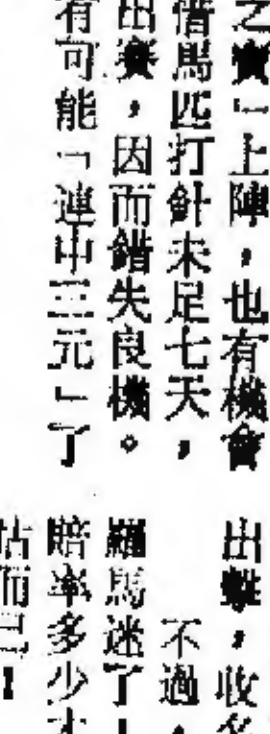 之寶」上陣，也有機會
借馬匹打針未足七天，
出賽，因而錯失良機。
有可能「連中三元」了
出擊，收名
不過，
羅馬迷了！
賠率多少才
估而已！